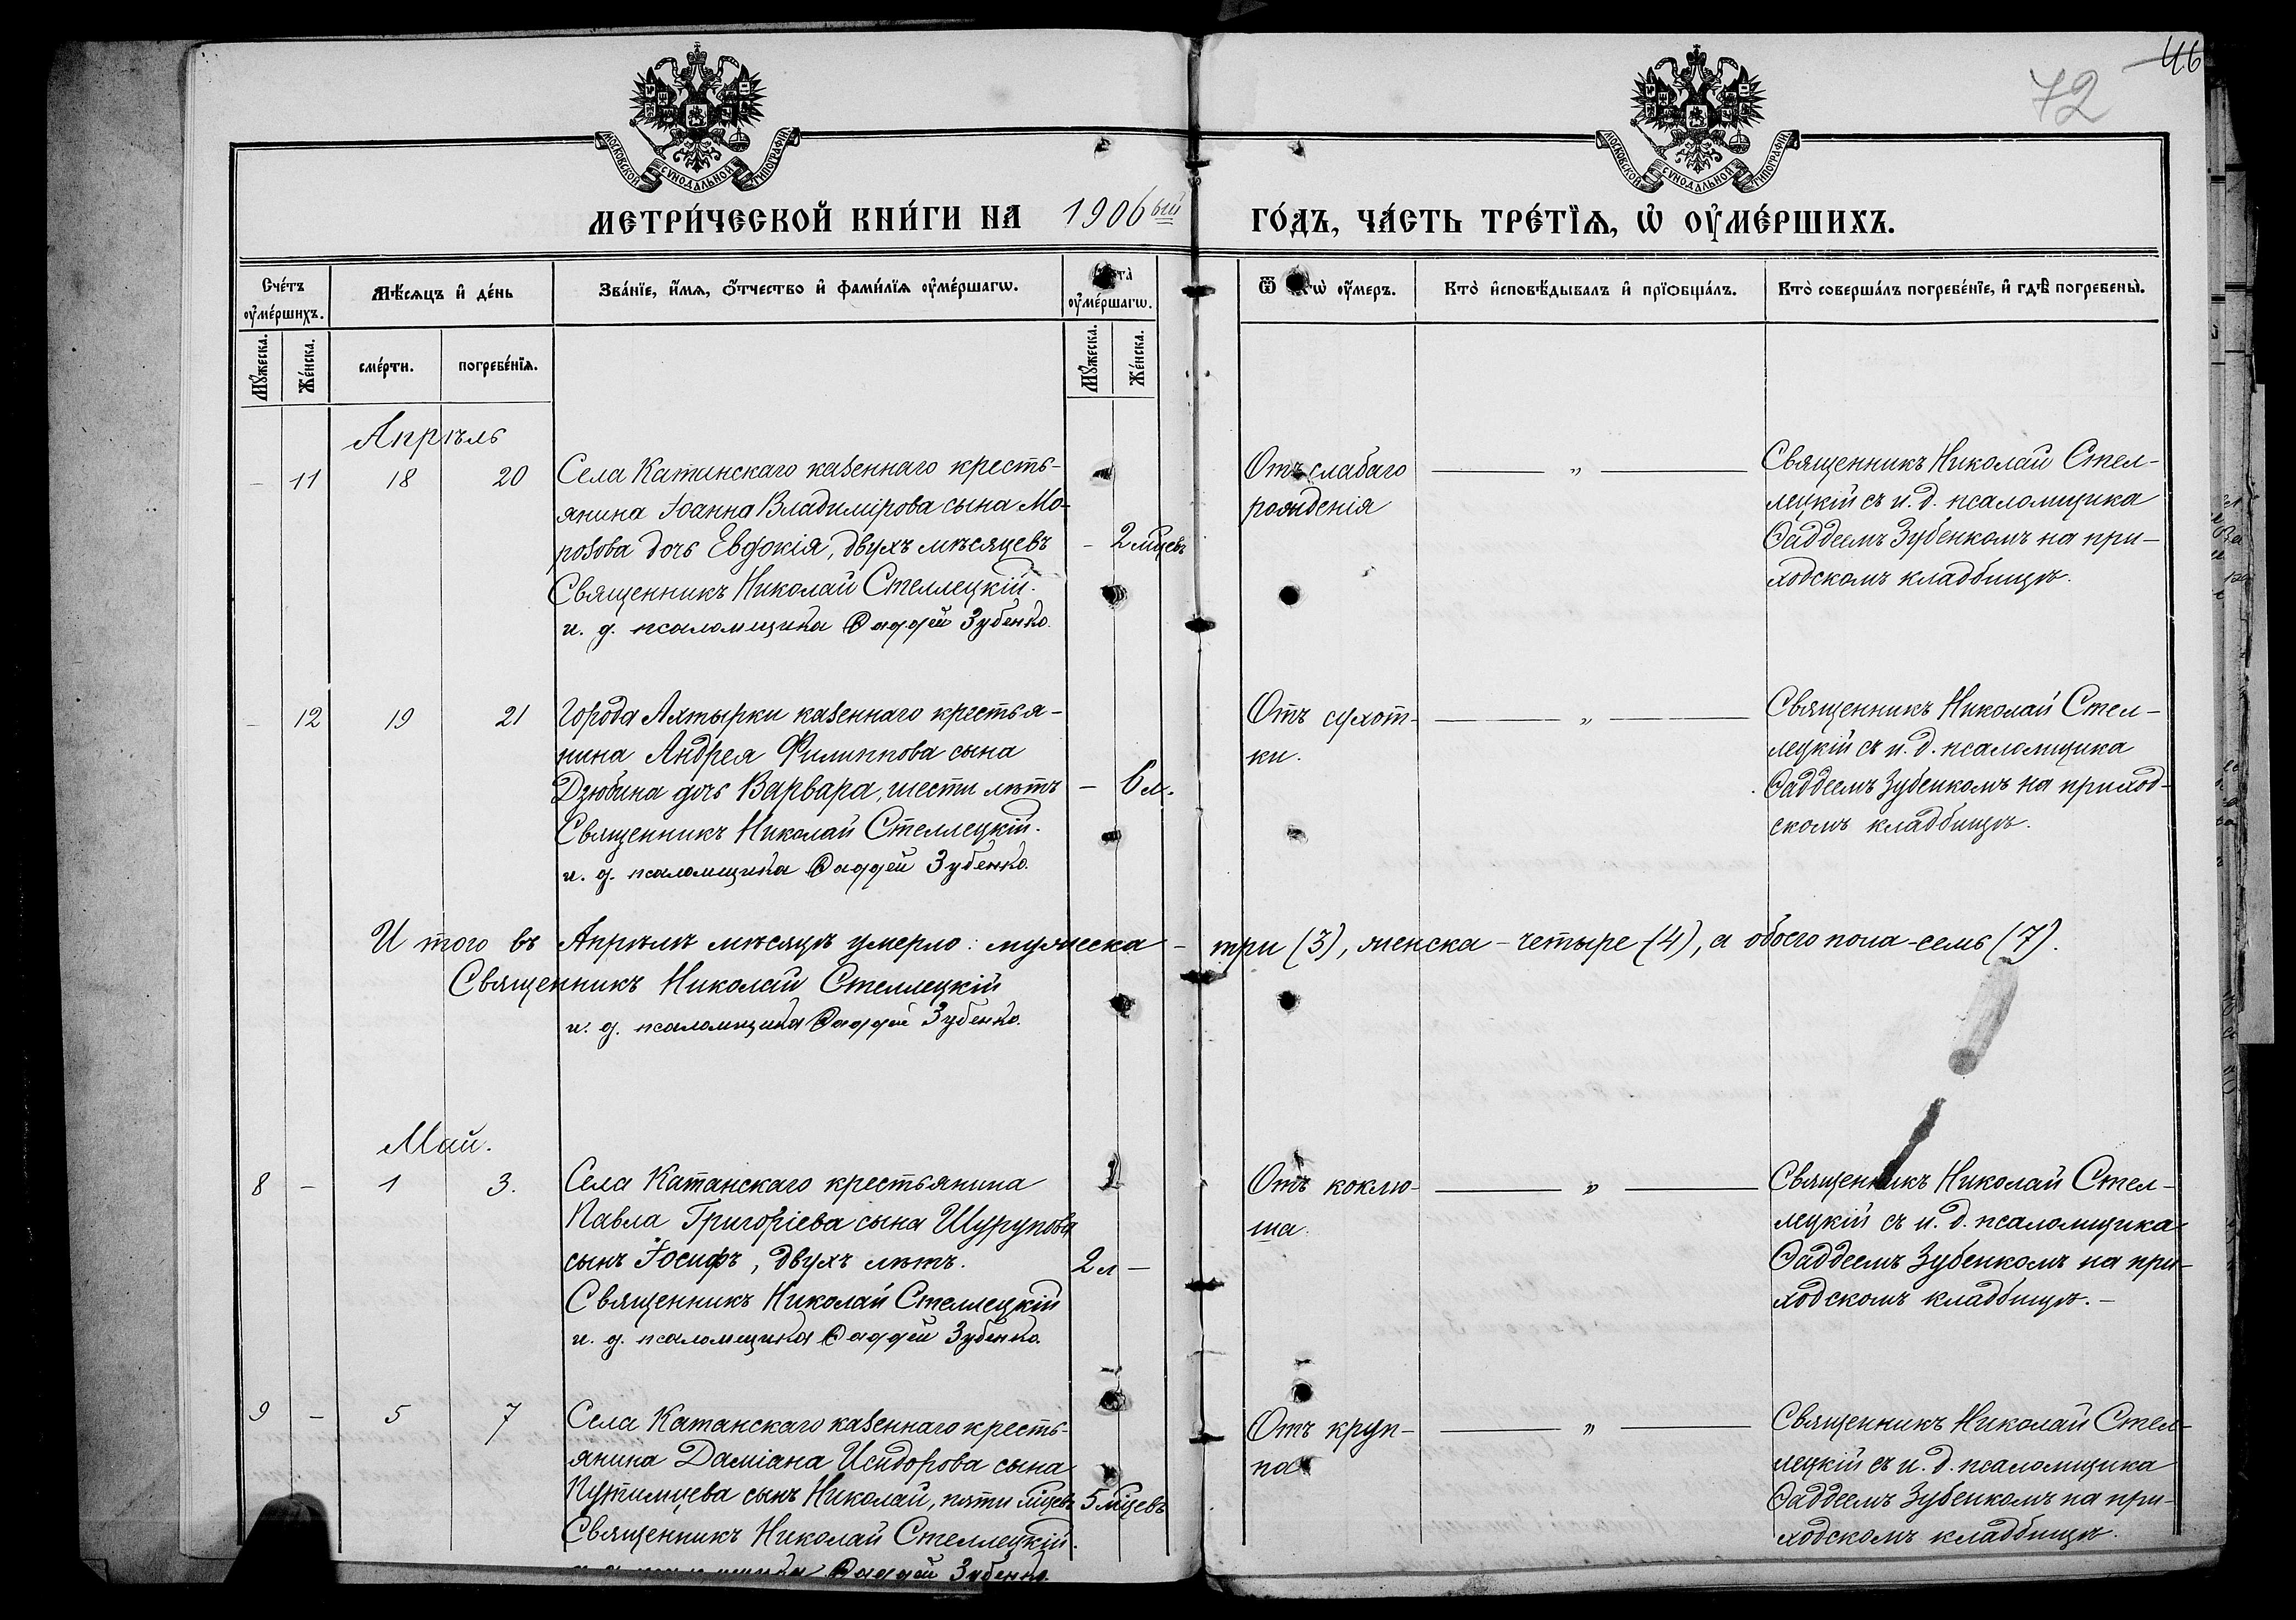 46
72
МОСКОВСКОЙ СѴНОДАЛЬНОЙ ТИПОГРАФІИ
МОСКОВСКОЙ СѴНОДАЛЬНОЙ ТИПОГРАФІИ
МЕТРИ́ЧЕСКОЙ КНИ́ГИ НА 1906ый ГО́ДЪ, ЧА́СТЬ ТРЕ́ТЇѦ, Ѡ҆ ОУ҆МЕ́РШИХЪ.
Сче́тъ оу҆ме́ршихъ.
Мѣ́сяцъ и҆ де́нь
Зва́нїе, и҆́мѧ, ѻ҆́тчество и҆ фами́лїѧ оу҆ме́ршагѡ.
оу҆ме́ршагѡ.
оу҆́меръ.
Кто̀ и҆сповѣ́дывалъ и҆ прїѡбща́лъ.
Кто̀ соверша́лъ погребе́нїе, и҆ гдѣ̀ погребены̀.
Мꙋ́жеска.
Же́нска.
сме́рти.
погребе́нїѧ.
Мꙋ́жеска.
Же́нска.
Апрѣль
– 11 18 20 Села Катанскаго казеннаго кресть-
янина Іоанна Владимірова сына Мо-
розова дочь Евдокія, двухъ мѣсяцевъ – 2 мцевъ
Священникъ Николай Стеллецкій.
и. д. псаломщика Ѳаддей Зубенко.
Отъ слабаго
рожденія
— „ —
Священникъ Николай Стел-
лецкій съ и. д. псаломщика
Ѳаддеемъ Зубенкомъ на при-
ходскомъ кладбищѣ.
– 12 19 21 Города Ахтырки казеннаго крестья-
нина Андрея Филиппова сына
Дзюбина дочь Варвара, шести лѣтъ – 6 л.
Священникъ Николай Стеллецкій.
и. д. псаломщика Ѳаддей Зубенко.
Отъ сухот-
ки.
— „ —
Священникъ Николай Стел-
лецкій съ и. д. псаломщика
Ѳаддеемъ Зубенкомъ на приход-
скомъ кладбищѣ.
Итого въ Апрѣлѣ мѣсяцѣ умерло: мужеска – три (3), женска – четыре (4), а обоего пола – семь (7).
Священникъ Николай Стеллецкій
и. д. псаломщика Ѳаддей Зубенко.
Май.
8 – 1 3. Села Катанскаго крестьянина
Павла Григоріева сына Шурупова
сынъ Іосифъ, двухъ лѣтъ. 2 л –
Священникъ Николай Стеллецкій
и. д. псаломщика Ѳаддей Зубенко.
Отъ коклю-
ша.
— „ —
Священникъ Николай Стел-
лецкій съ и. д. псаломщика
Ѳаддеемъ Зубенкомъ на при-
ходскомъ кладбищѣ. –
9 – 5 7 Села Катанскаго казеннаго кресть-
янина Даміана Исидорова сына
Путимцева сынъ Николай, пяти мцевъ 5 мцевъ
Священникъ Николай Стеллецкій.
Ѳаддей Зубенко.
Отъ круп-
па
— „ —
Священникъ Николай Стел-
лецкій съ и. д. псаломщика
Ѳаддеемъ Зубенкомъ на при-
ходскомъ кладбищѣ.